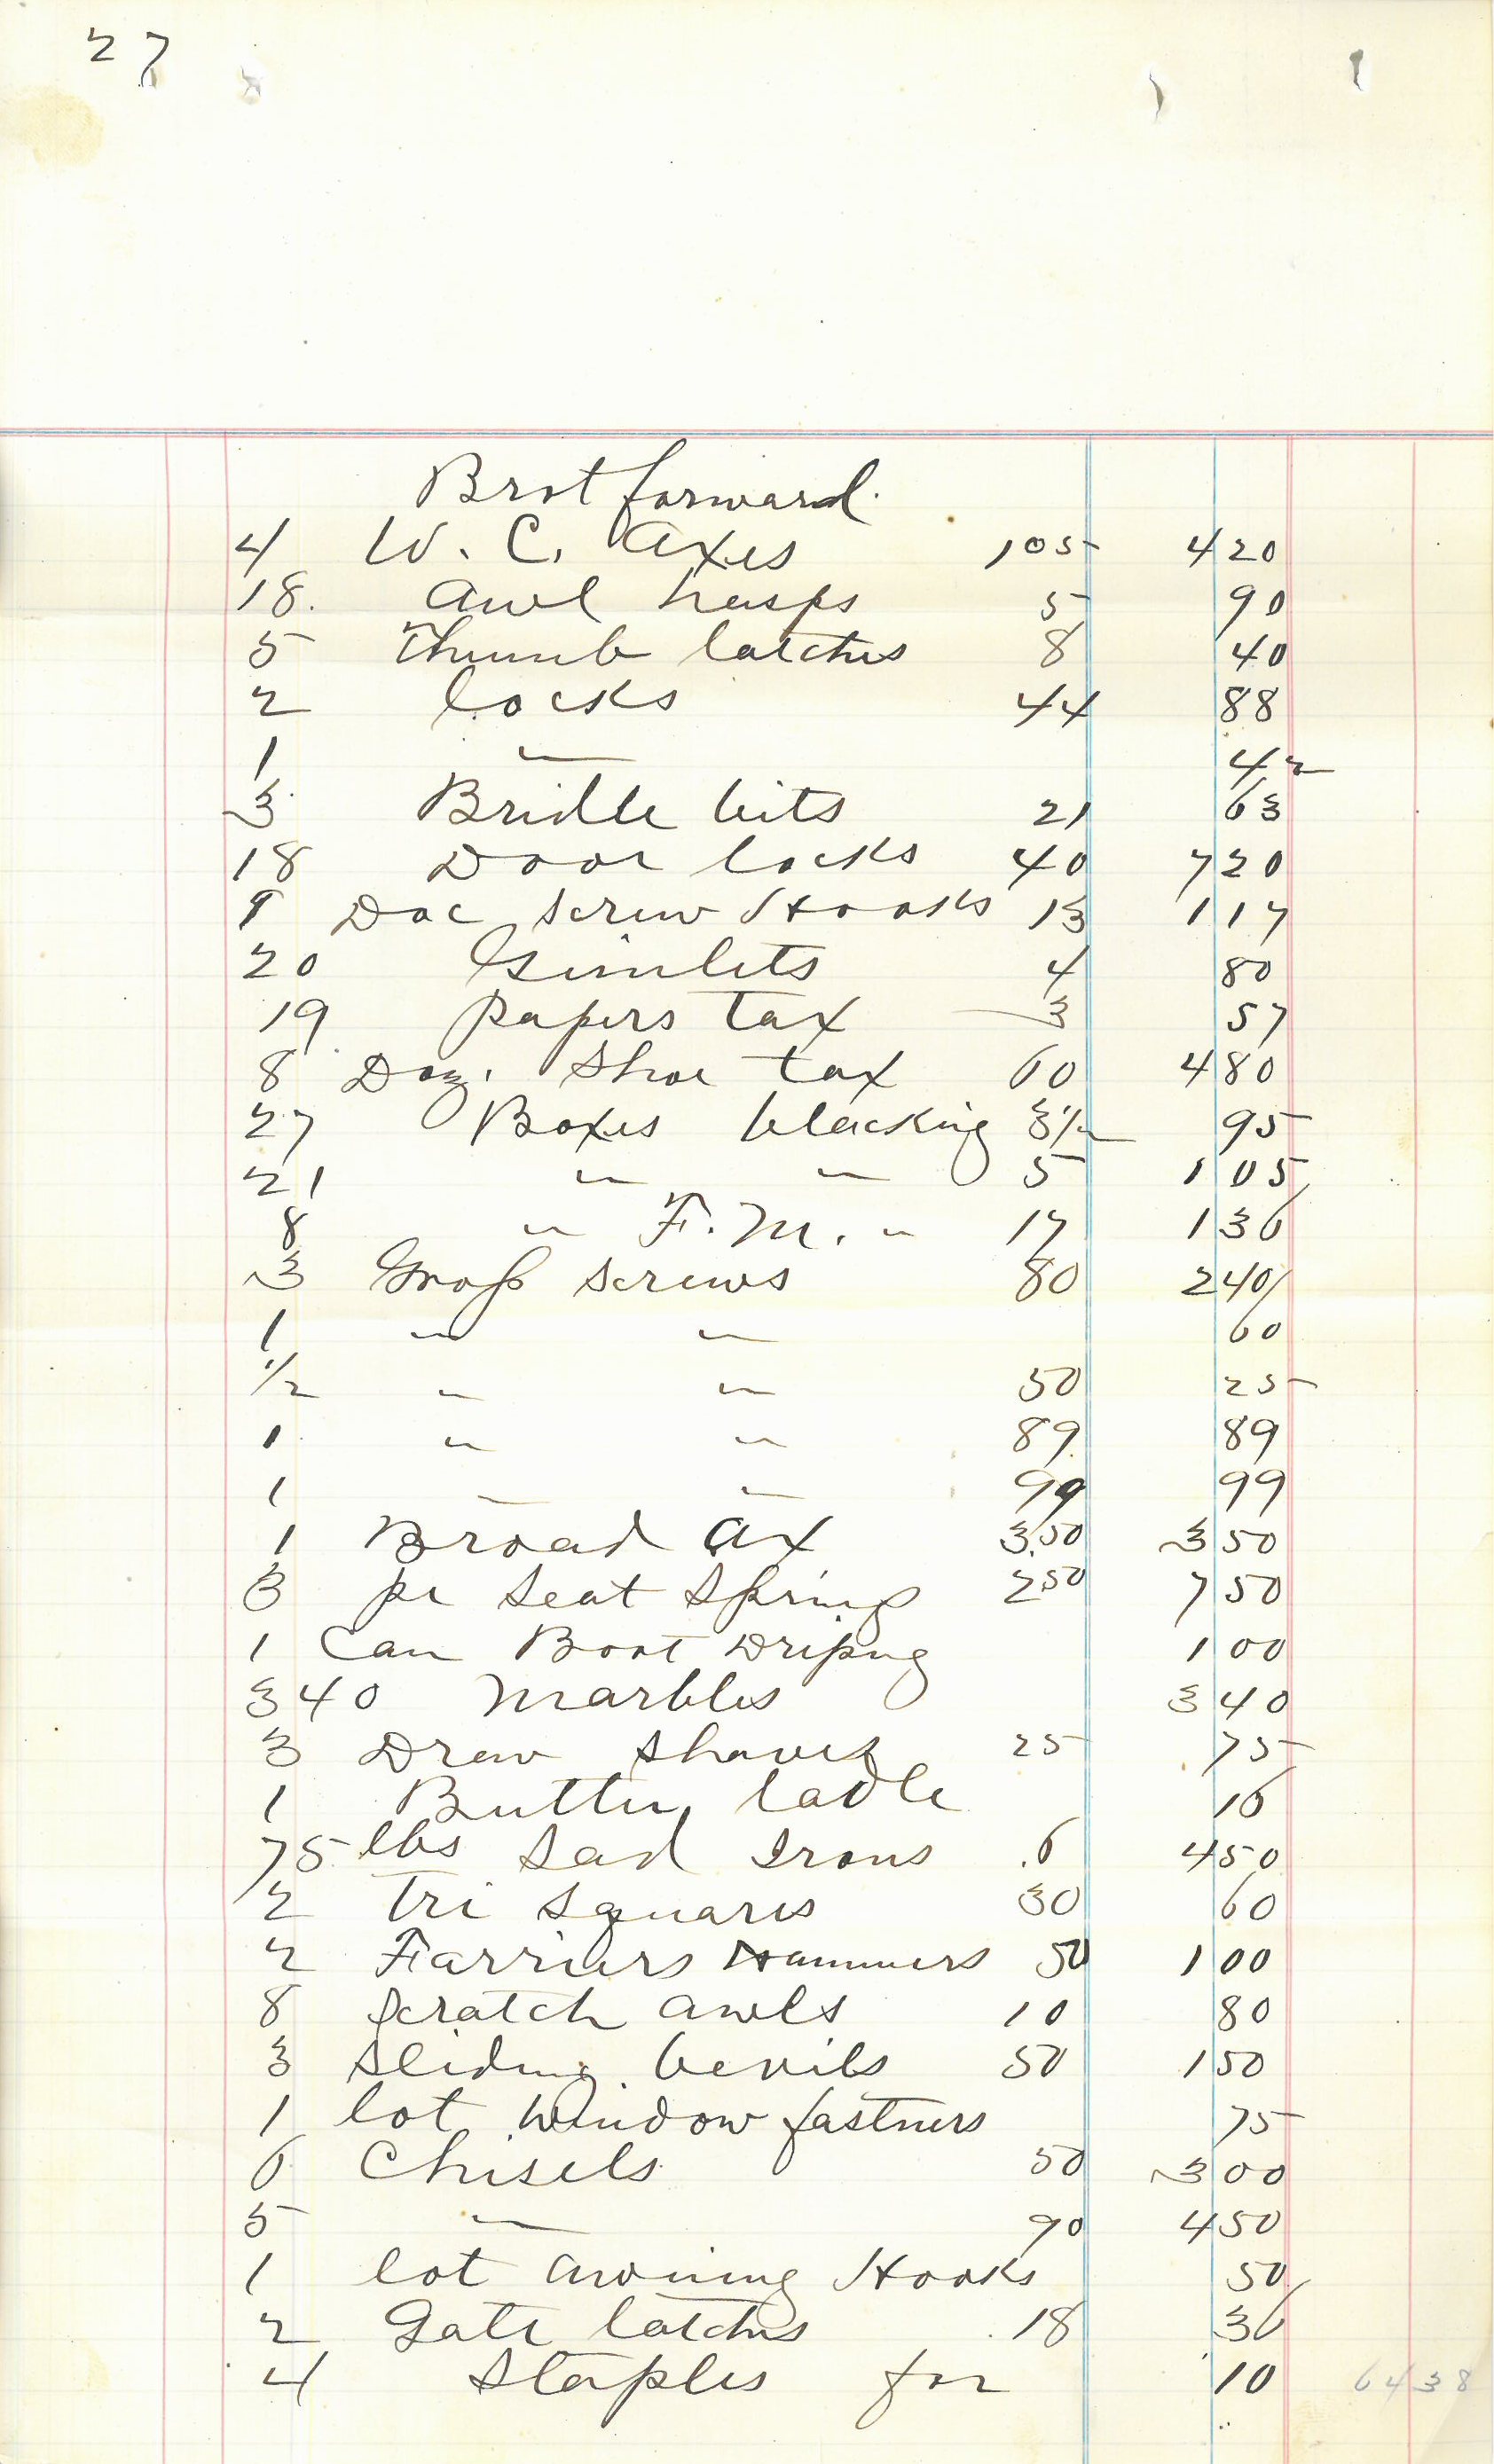 27
Brot forward.
4 W. C. Axes 105 4 20
18. Awl hasps 5 90
5 Thumb latches 8 40
2 locks 44 88
1 " 42
3 Bridle bits 21 63
18 Door locks 40 7 20
9 Doz screw Hooks 13 1 17
20 Gimlets 4 80
19 papers tax 3 57
8 Doz. Shoe tax 60 4 80
27 Boxes blacking 3 1/2 95
21 " " 5 1 05
8 " F. M. " 17 1 36
3 Gross screws 80 2 40
1 " " 60
1/2 " " 50 25
1 " " 89 89
1 " " 99 99
1 Broad Ax 3.50 3 50
3 pr Seat Spring 2 50 7 50
1 Can Boot Dripng 1 00
340 Marbles 3 40
3 Draw shaves 25 75
1 Butter ladle 10
75 lbs Sad Irons .6 4 50
2 Tri Squares 30 60
2 Farriers Hammers 50 1 00
8 Scratch awls 10 80
3 Sliding bevils 50 1 50
1 lot Window fastners 75
6 Chisels 50 3 00
5 " 90 4 50
1 lot awning Hooks 50
2 Gate latches 18 36
4 Staples for 10 64 38